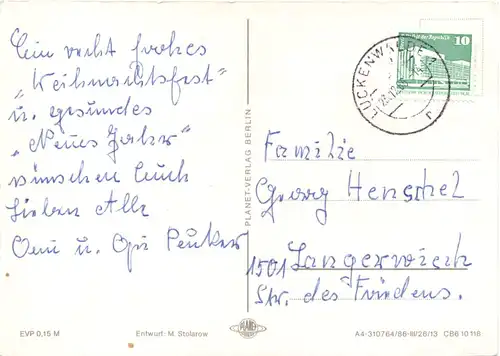 Ein recht frohes
„Weihnachtsfest"
u. gesundes
„Neues Jahr"
wünschen Euch
Lieben Alle
Omi u. Opi Peuker
EVP 0,15 M
Entwurf: M. Stolarow
PLANET-VERLAG BERLIN
PLANET
LUCKENWALDE
10
Familie
Georg Henschel
1501 Langerwisch
Str. des Friedens.
A4-310764/86-III/26/13 CB6 10 116